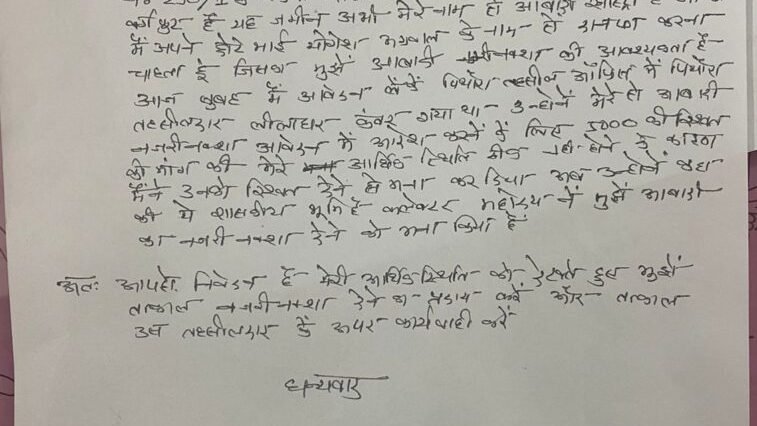 वर्गफुट है यह जमीन अभी मेरे नाम
में अपने छोटे भाई योगेश अग्रवाल के नाम से दानपत्र करना
चाहता हूं जिसमें मुझे आबादी नजरीनक्शा की आवश्यकता है
आज सुबह में आवेदन लेके पिथौरा तहसील ऑफिस में पिथौरा
तहसीलदार लीलाधर कंवर गया था उन्होंने मेरे से आबादी
नजरीनक्शा आवेदन में आदेश करने के लिए 5000 की रिश्वत
की मांग की मेरे आर्थिक स्थिति ठीक नही होने के कारण
मैंने उनको रिश्वत देने से मना कर दिया अब उन्होंने कहा
की ये शासकीय भूमि है कलेक्टर महोदय ने मुझे आबादी
का नजरीनक्शा देने को मना किया है
अतः आपसे निवेदन है मेरी आर्थिक स्थिति को देखते हुए मुझे
तत्काल नजरीनक्शा देने का करें और तत्काल
उस तहसीलदार के ऊपर कार्यवाही करें
धन्यवाद